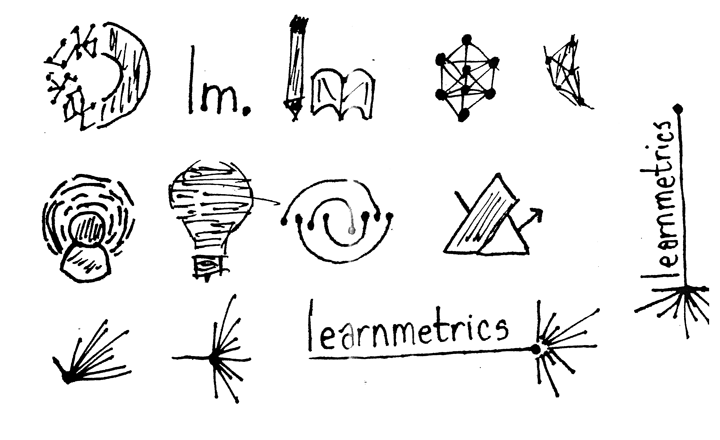 lm.
learnmetrics
learnmetrics